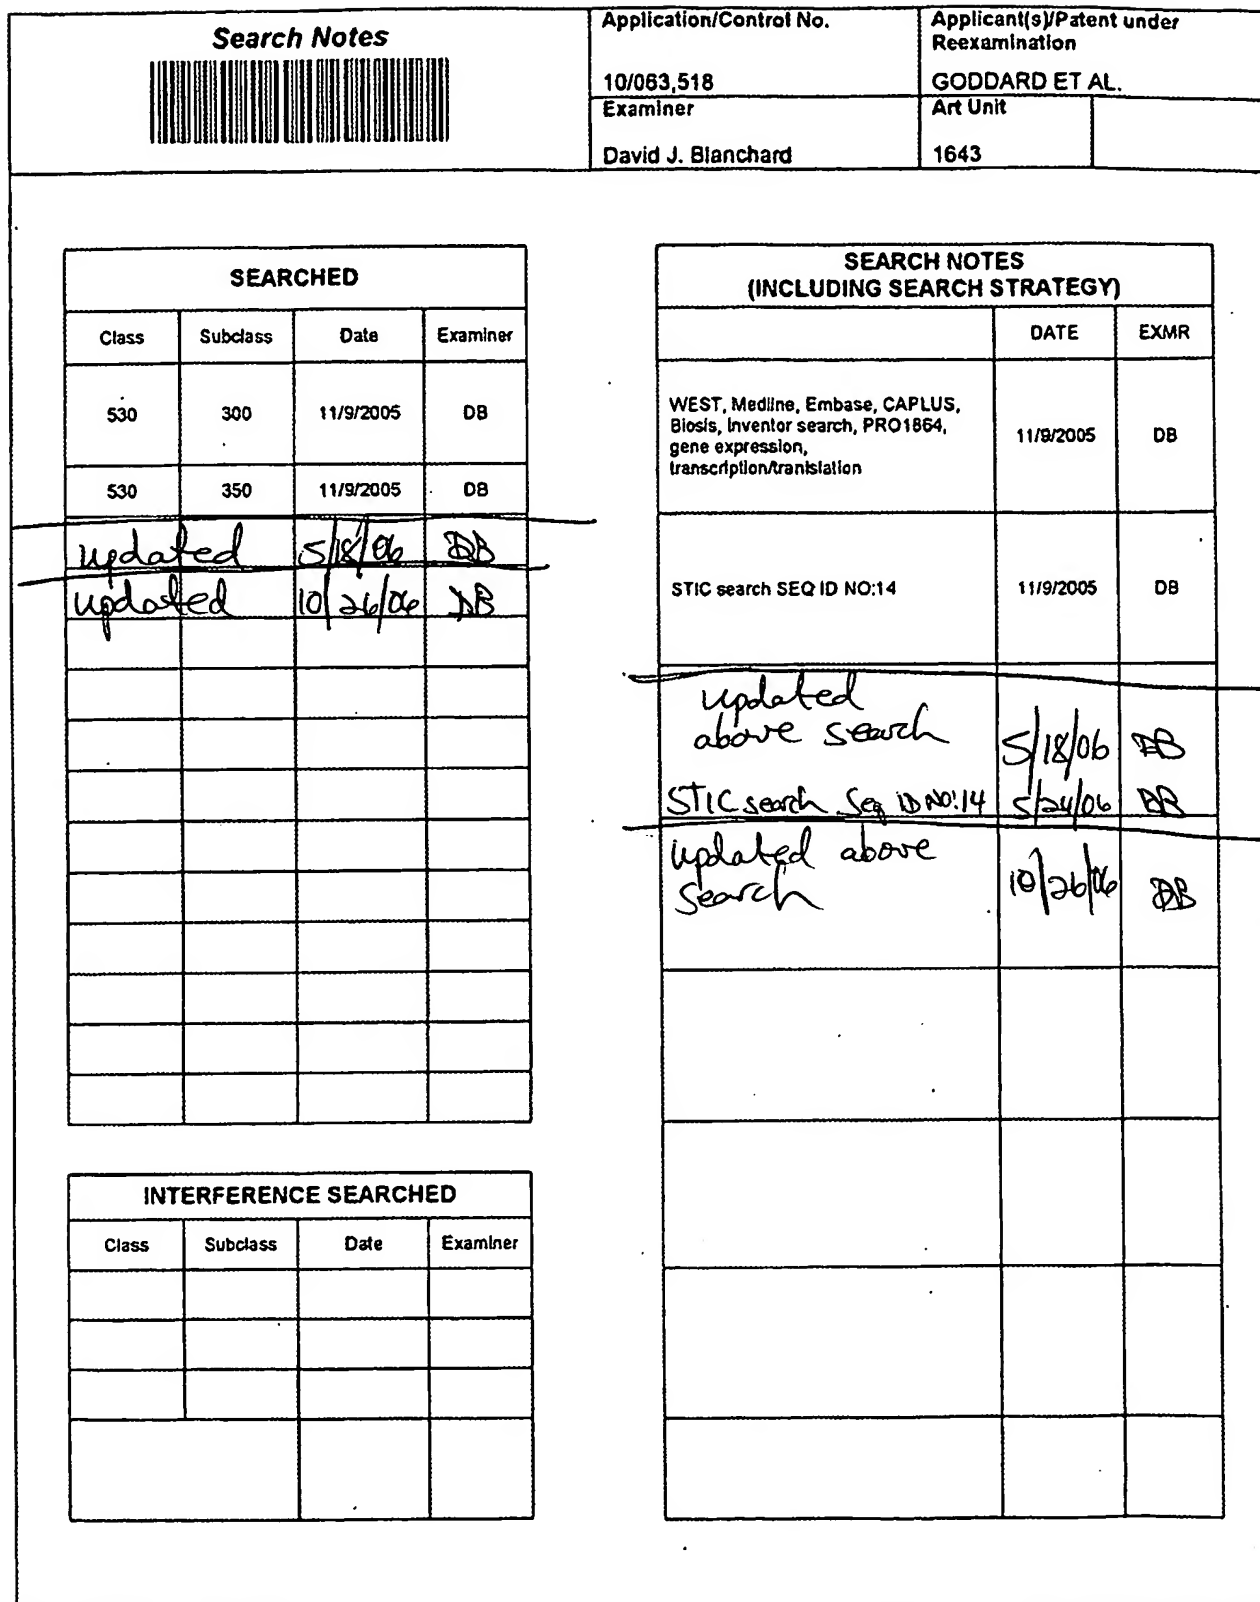 Search Notes
Application/Control No.
10/063,518
Applicant(s)/Patent under
Reexamination
GODDARD ET AL.
Examiner
David J. Blanchard
Art Unit
1643
SEARCHED
Class Subclass Date Examiner
530 300 11/9/2005 DB
530 350 11/9/2005 DB
updated 5/18/06 DB
updated 10/26/06 DB
INTERFERENCE SEARCHED
Class Subclass Date Examiner
SEARCH NOTES
(INCLUDING SEARCH STRATEGY)
DATE EXMR
WEST, Medline, Embase, CAPLUS,
Biosis, Inventor search, PRO1864,
gene expression,
transcription/tranlslation
11/9/2005 DB
STIC search SEQ ID NO:14 11/9/2005 DB
updated
above search 5/18/06 DB
STIC search Seq ID NO:14 5/24/06 DB
updated above
search 10/26/06 DB